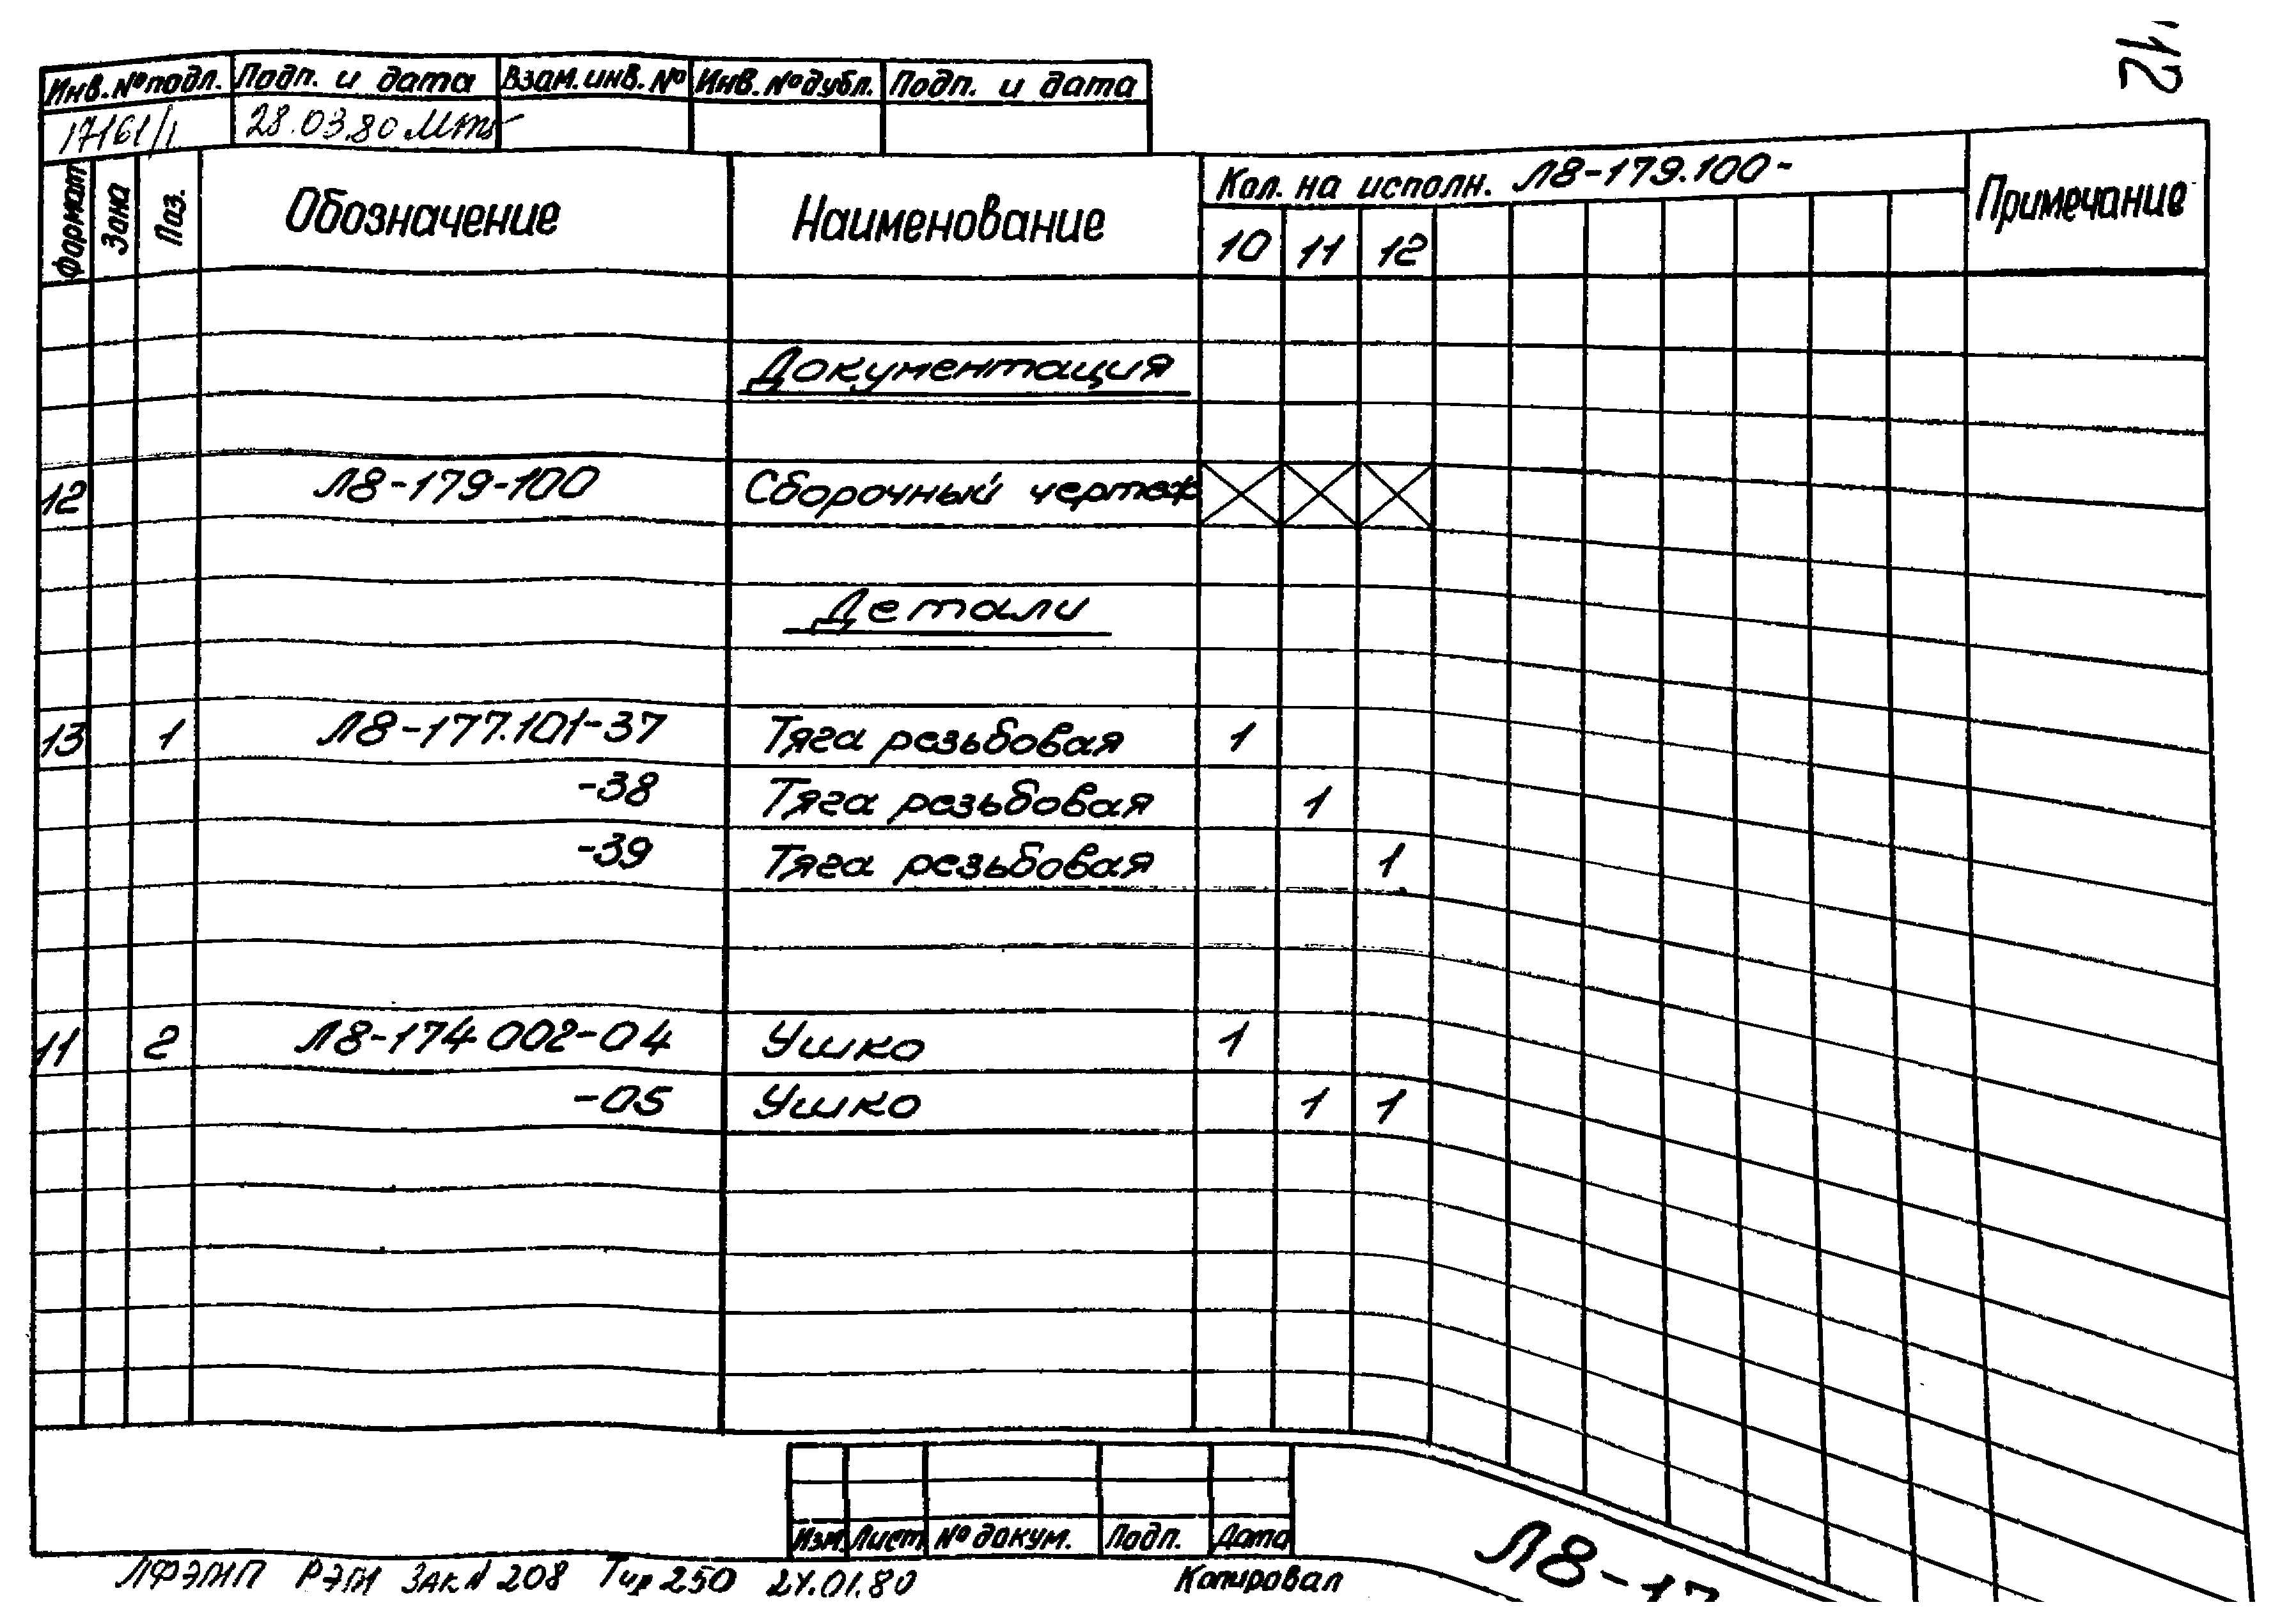 112
Инв. № подл. Подп. и дата Взам. инв. № Инв. № дубл. Подп. и дата
17161/1 28.03.80
Формат Зона Поз. Обозначение Наименование Кол. на исполн. Л8-179.100- Примечание
10 11 12
Документация
12 Л8-179-100 Сборочный чертеж
Детали
13 1 Л8-177.101-37 Тяга резьбовая 1
-38 Тяга резьбовая 1
-39 Тяга резьбовая 1
11 2 Л8-174.002-04 Ушко 1
-05 Ушко 1 1
Изм. Лист № докум. Подп. Дата
ЛФЭМП РЭГИ Зак № 208 Тир 250 24.01.80 Копировал
Л8-17